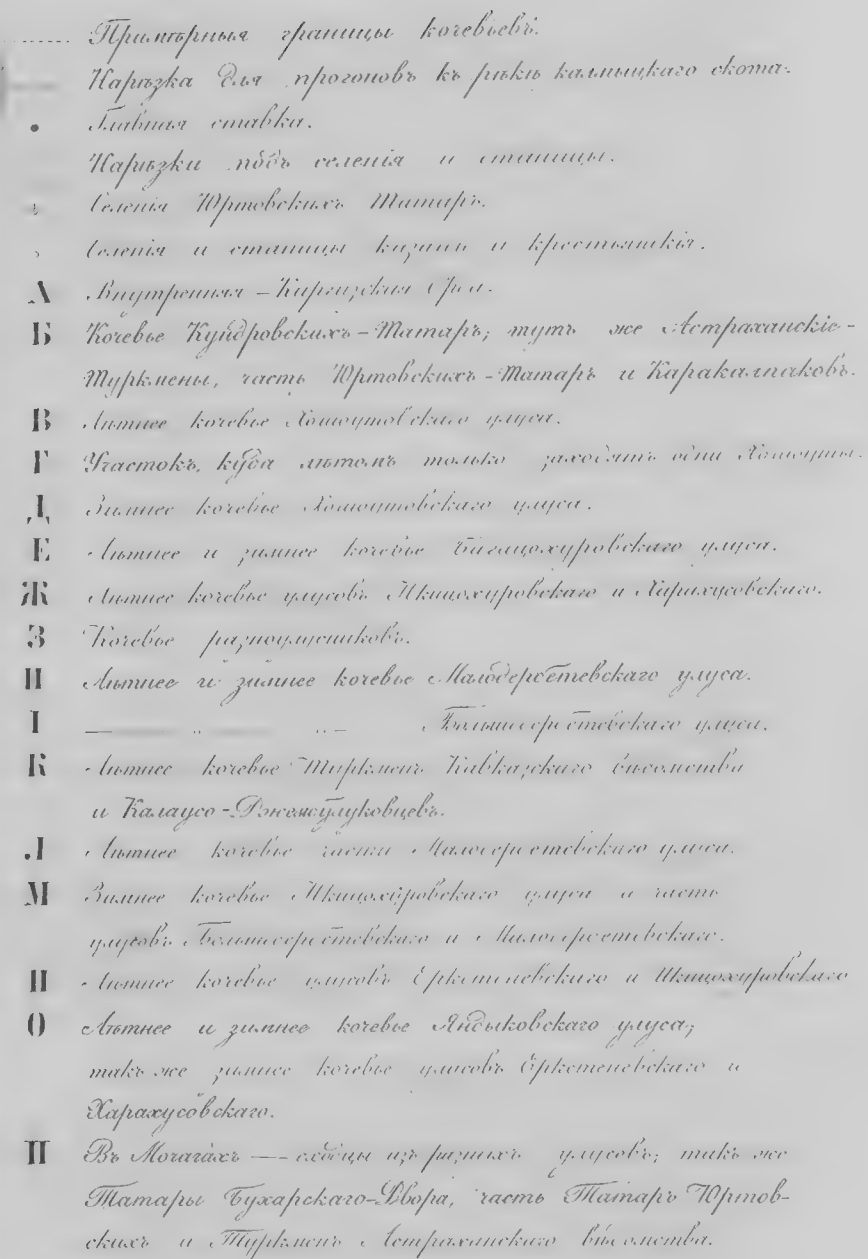 Примѣрныя границы кочевьевъ.
Нарѣзка для прогоновъ къ рѣкѣ калмыцкаго скота.
Главная ставка.
Нарѣзки подъ селенія и станицы.
Селенія Юртовскихъ Татаръ.
Селенія и станицы казачьи и крестьянскія.
А Внутренняя-Киргизская Орда.
Б Кочевье Кундровскихъ-Татаръ; тутъ же Астраханскіе-
Туркмены, часть Юртовскихъ-Татаръ и Каракалпаковъ.
В Лѣтнее кочевье Хошоутовскаго улуса.
Г Участокъ, куда лѣтомъ только заходятъ одни Хошоуты.
Д Зимнее кочевье Хошоутовскаго улуса.
Е Лѣтнее и зимнее кочевье Багацохуровскаго улуса.
Ж Лѣтнее кочевье улусовъ Икицохуровскаго и Харахусовскаго.
З Кочевье разноулусниковъ.
И Лѣтнее и зимнее кочевье Малодербетевскаго улуса.
І —— „ —— „ — Большедербетевскаго улуса.
К Лѣтнее кочевье Туркменъ Кавказскаго вѣдомства
и Калаусо-Джембулуковцевъ.
Л Лѣтнее кочевье части Малодербетевскаго улуса.
М Зимнее кочевье Икицохуровскаго улуса и часть
улусовъ Большедербетевскаго и Малодербетевскаго.
Н Лѣтнее кочевье улусовъ Еркетеневскаго и Икицохуровскаго
О Лѣтнее и зимнее кочевье Яндыковскаго улуса;
такъ же зимнее кочевье улусовъ Еркетеневскаго и
Харахусовскаго.
П Въ Мочагахъ — сходцы изъ разныхъ улусовъ; такъ же
Татары Бухарскаго-Двора, часть Татаръ Юртов-
скихъ и Туркменъ Астраханскаго вѣдомства.